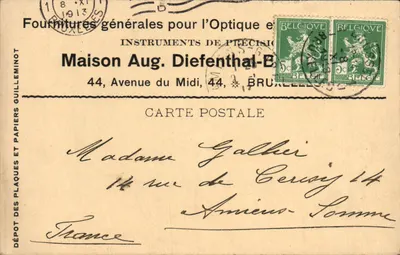 1 8 XI 1913
BRUXELLES
Fournitures générales pour l'Optique e
INSTRUMENTS DE PRÉCISIO
Maison Aug. Diefenthal-B
44, Avenue du Midi, 44, BRUXELLE
BELGIQUE BELGIQUE
CARTE POSTALE
Madame Gallier
14 rue de Cerisy 14
Amiens-Somme
France
DÉPOT DES PLAQUES ET PAPIERS GUILLEMINOT